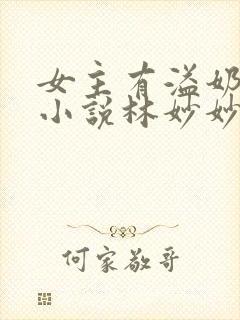 女主有溢奶
小說林妙妙
何家敬哥